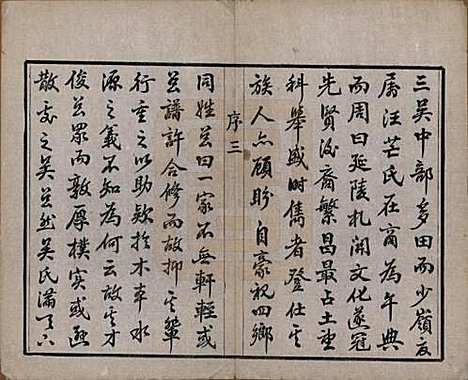 三吳中部多田而少嶺交
屬汪芒氏在商為
而周曰延陵札開文化遂冠
先賢後裔繁昌最占土望
科舉盛時雋者登仕
族人亦顧盼自豪視四鄉
序三
同姓曰一家不無軒輊或
譜許合修而故抑輩
行重之以助欵於木本水
源之義不知為何云故才
俊眾而敦厚樸實或遜
散之吳然吳氏滿六